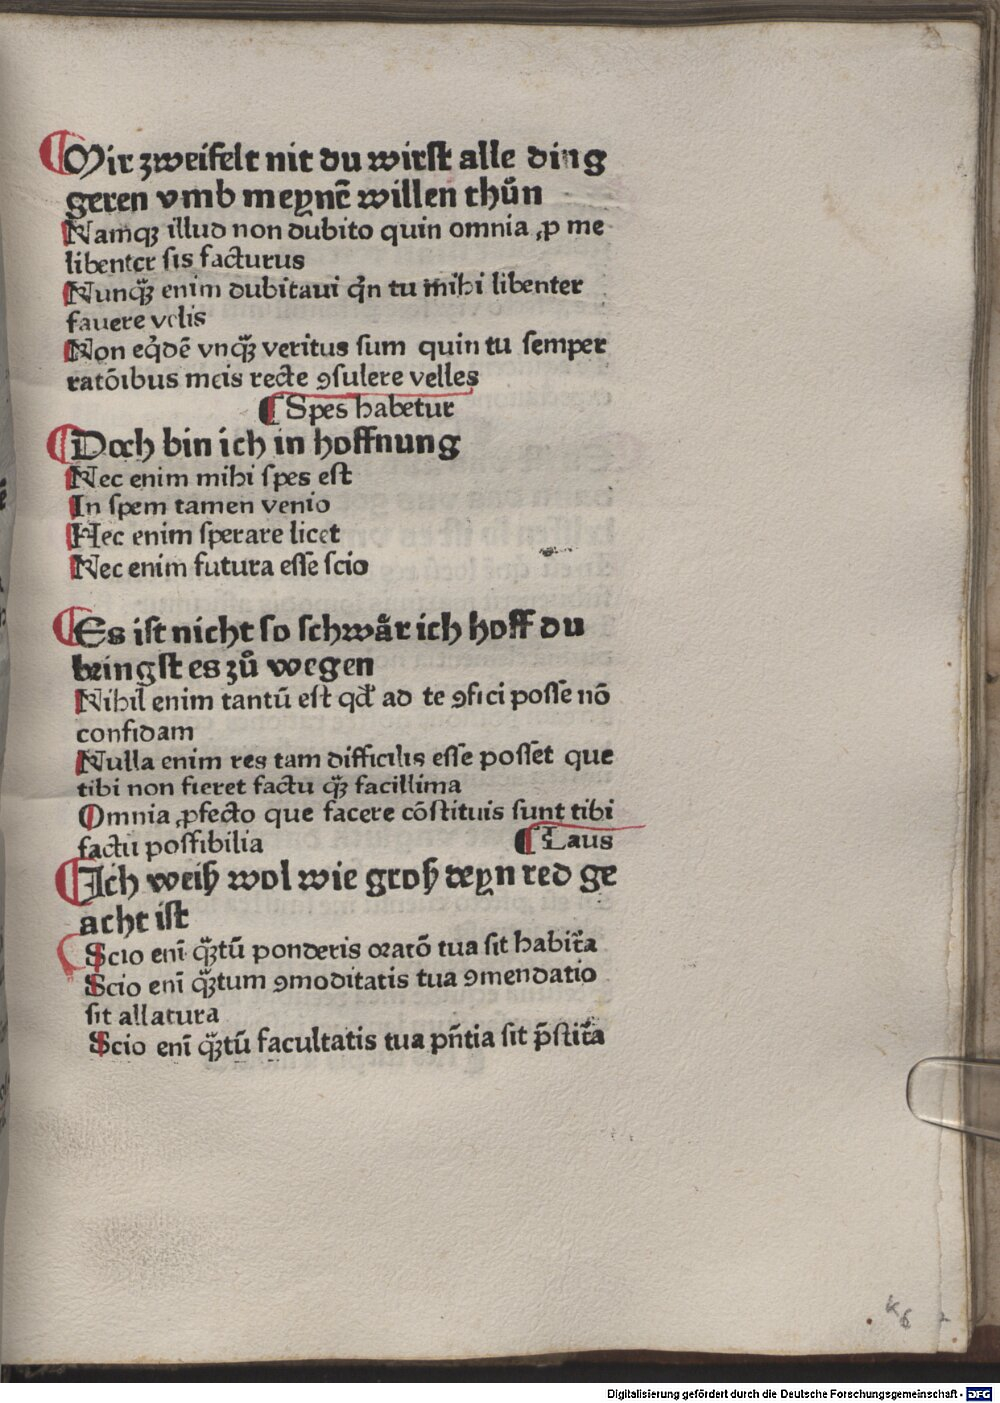 Mir zweifelt nit du wirst alle ding
geren vmb meynē willen thůn
Namqꝫ illud non dubito quin omnia ꝓ me
libenter sis facturus
Nunqꝫ̈ enim dubitaui qͥn tu mihi libenter
fauere velis
Non eqͥdē vnqꝫ̈ veritus sum quin tu semper
ratōibus meis recte ꝯsulere velles
¶ Spes habetur
Doch bin ich in hoffnung
Nec enim mihi spes est
In spem tamen venio
Hec enim sperare licet
Nec enim futura esse scio
Es ist nicht so schwår ich hoff du
bringst es zů wegen
Nihil enim tantū est qď ad te ꝯfici posse nō
confidam
Nulla enim res tam difficilis esse posset que
tibi non fieret factu qꝫ̈ facillima
Omnia ꝓfecto que facere cōstituis sunt tibi
factu possibilia ¶ Laus
Ich weiß wol wie groß deyn red ge
acht ist
Scio enī qꝫ̈tū ponderis oratō tua sit habit̄a
Scio enī qꝫ̈tum ꝯmoditatis tua ꝯmendatio
sit allatura
Scio enī qꝫ̈tū facultatis tua pn̄tia sit p̄stit̄a
k6
Digitalisierung gefördert durch die Deutsche Forschungsgemeinschaft - DFG